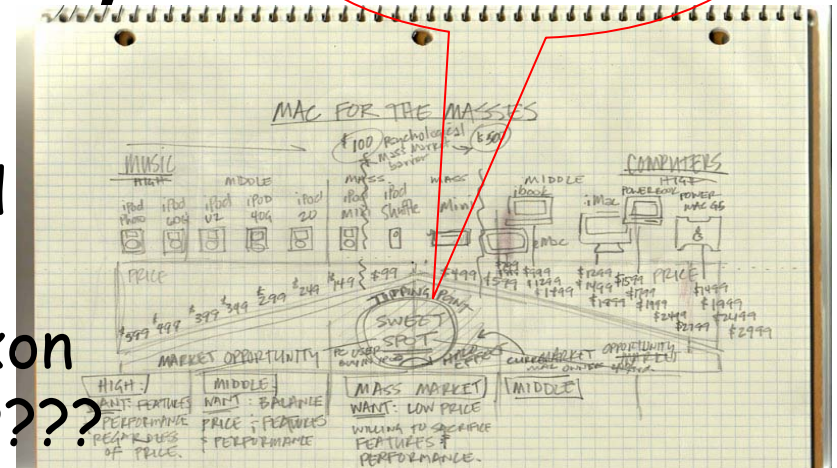 MAC FOR THE MASSES
$100 Psychological $500
& Mass Market
barrier
MUSIC COMPUTERS
HIGH MIDDLE MASS MASS MIDDLE HIGH
iPod Photo
iPod 60G
iPod U2
iPod 40G
iPod 20
iPod Mini
iPod Shuffle
Mini
eMac
ibook
iMac
POWERBOOK
POWER MAC G5
PRICE
$599 $499 $399 $349 $299 $249 $149 $99 $499
PRICE
$1299
$1499
$1899
$1599
$1799
$1999
$2499
$2799
$1499
$1999
$2499
$2999
TIPPING POINT
SWEET
SPOT
MARKET OPPORTUNITY
PC USER
HALO
EFFECT
MARKET OPPORTUNITY
MAC OWNER
HIGH
WANT: FEATURES
PERFORMANCE
REGARDLESS
OF PRICE.
MIDDLE
WANT: BALANCE
PRICE & FEATURES
& PERFORMANCE
MASS MARKET
WANT: LOW PRICE
WILLING TO SACRIFICE
FEATURES &
PERFORMANCE.
MIDDLE
on
????